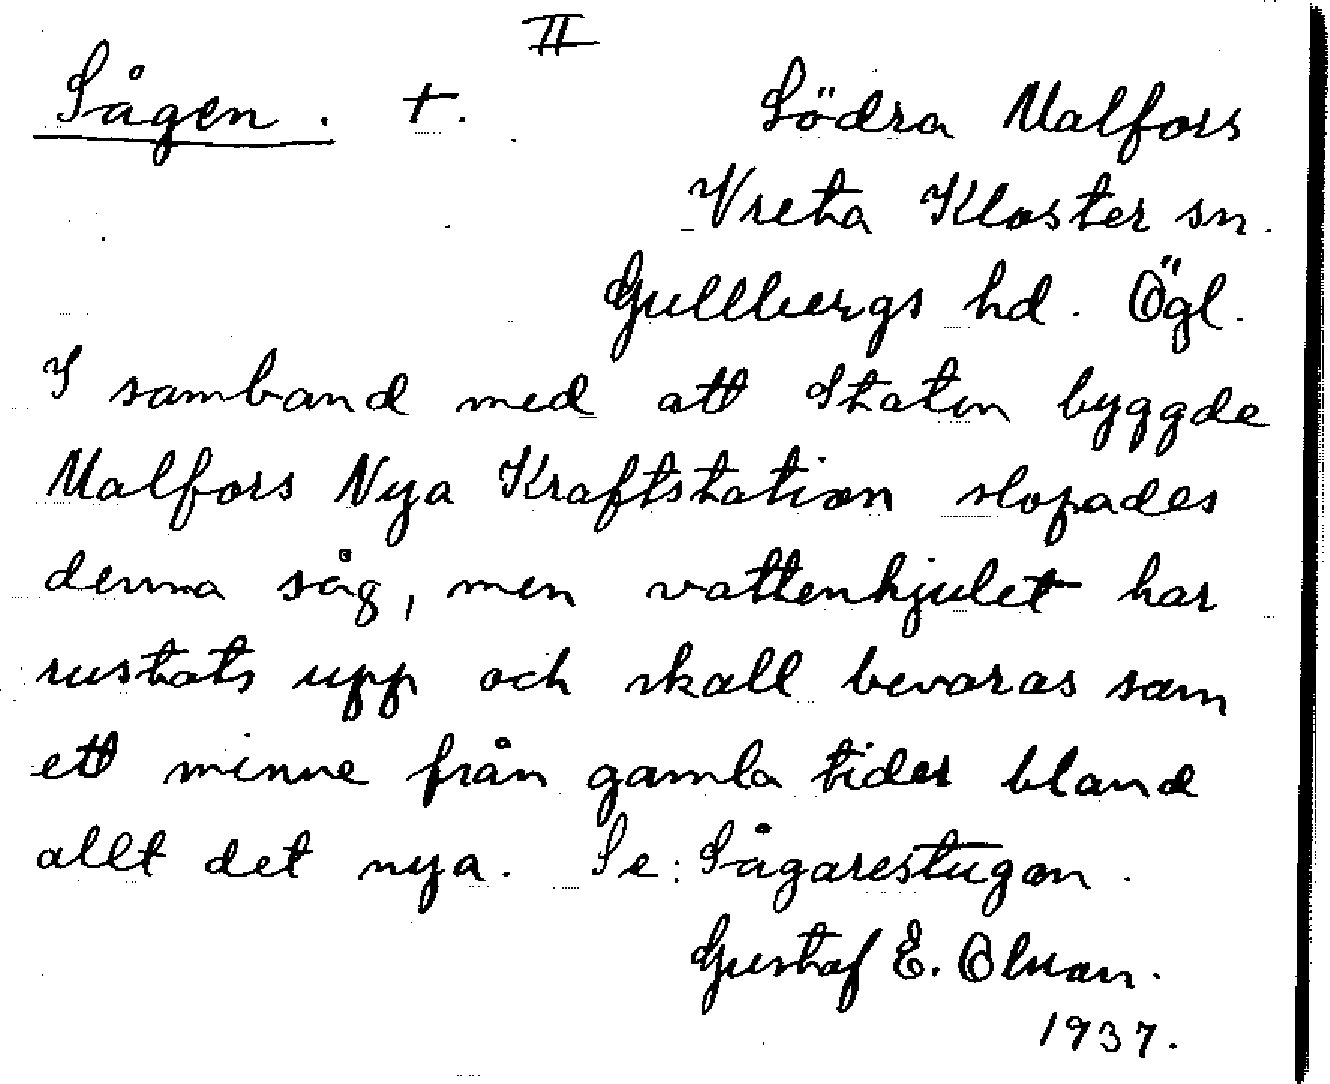 II
Sågen. +.
Södra Malfors
Vreta Kloster sn.
Gullbergs hd. Ögl.
I samband med att Staten byggde
Malfors Nya Kraftstation slopades
denna såg, men vattenhjulet har
rustats upp och skall bevaras som
ett minne från gamla tider bland
allt det nya. Se: Sågarestugan.
Gustaf E. Olsson.
1937.